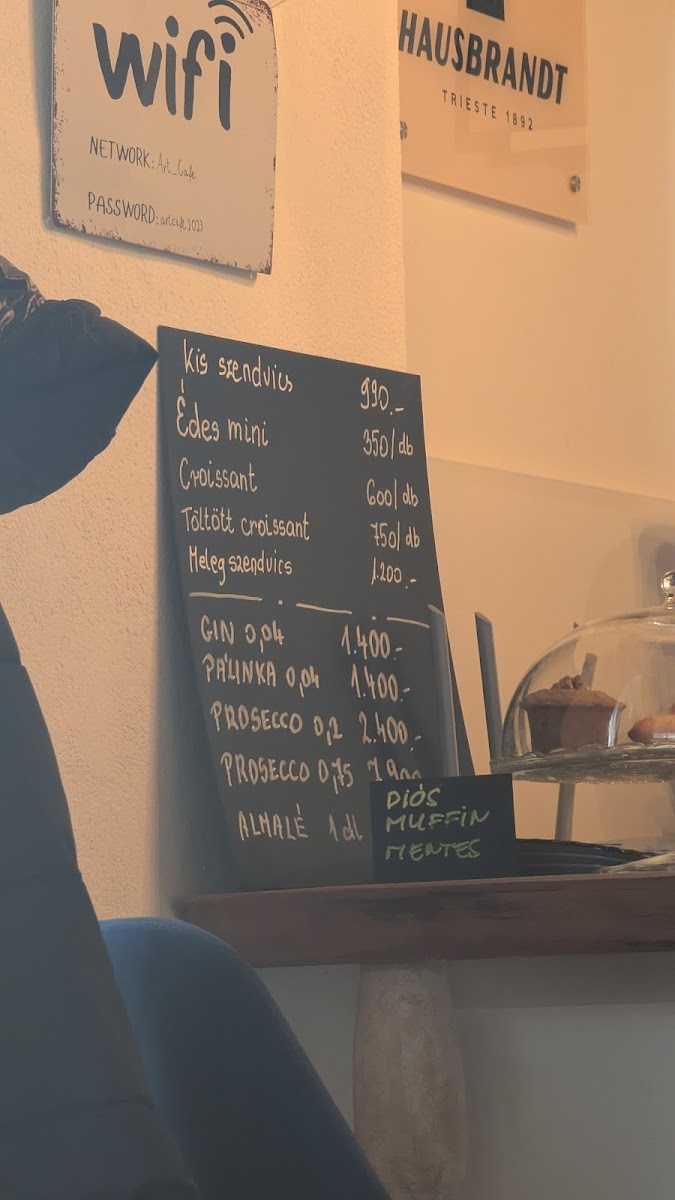 wifi
NETWORK: Art_Cafe
PASSWORD: artcafe2023
HAUSBRANDT
TRIESTE 1892
Kis szendvics 990.-
Édes mini 350/db
Croissant 600/db
Töltött croissant 750/db
Meleg szendvics 1.200.-
GIN 0,04 1.400.-
PÁLINKA 0,04 1.400.-
PROSECCO 0,2 2.400.-
PROSECCO 0,75 7.900
ALMALÉ 1 dl
DIÓS
MUFFIN
MENTES